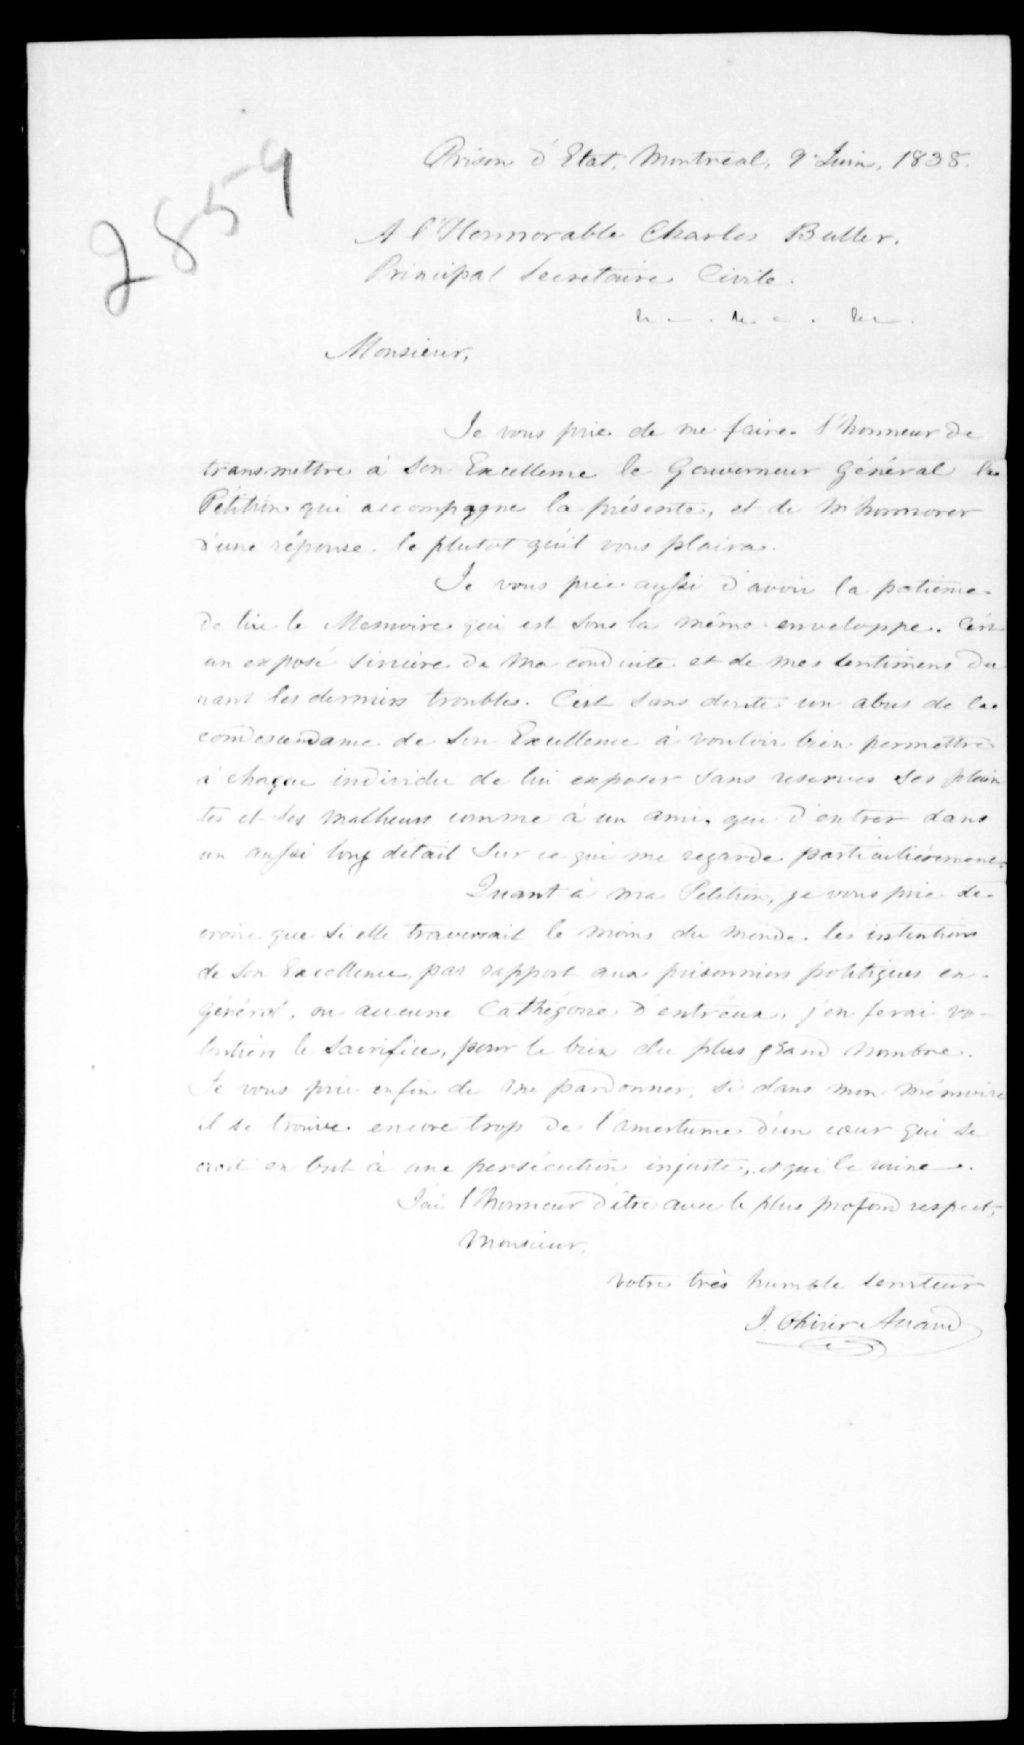 2859
Prison d'Etat, Montréal, 9 Juin, 1838.
A l'Honnorable Charles Buller,
Principal Secretaire Civile.
&c. &c. &c.
Monsieur,
Je vous prie de me faire l'honneur de
transmettre à Son Excellence le Gouverneur Général la
Pétition qui accompagne la présente, et de m'honnorer
d'une réponse le plutot qu'il vous plaira.
Je vous prie aussi d'avoir la patience
de lire le Memoire qui est sous la même enveloppe. C'est
un exposé sincère de ma conduite et de mes sentimens du-
rant les derniers troubles. C'est sans doute un abus de la
condescendance de Son Excellence à vouloir bien permettre
à chaque individu de lui exposer sans reserves ses plain
tes et ses malheurs comme à un ami, que d'entrer dans
un aussi long détail sur ce qui me regarde particulièrement.
Quant à ma Petition, je vous prie de
croire que si elle traversait le moins du monde les intentions
de Son Excellence, par rapport aux prisonniers politiques en
général, ou aucune Cathégorie d'entr'eux, j'en ferai vo-
lontiers le sacrifice, pour le bien du plus grand nombre.
Je vous prie enfin de me pardonner, si dans mon mémoire
il se trouve encore trop de l'amertume d'un cœur qui se
croit en but à une persécution injuste, et qui le ruine.
J'ai l'honneur d'être avec le plus profond respect,
Monsieur,
Votre très humble serviteur
J. Olivier Arcand